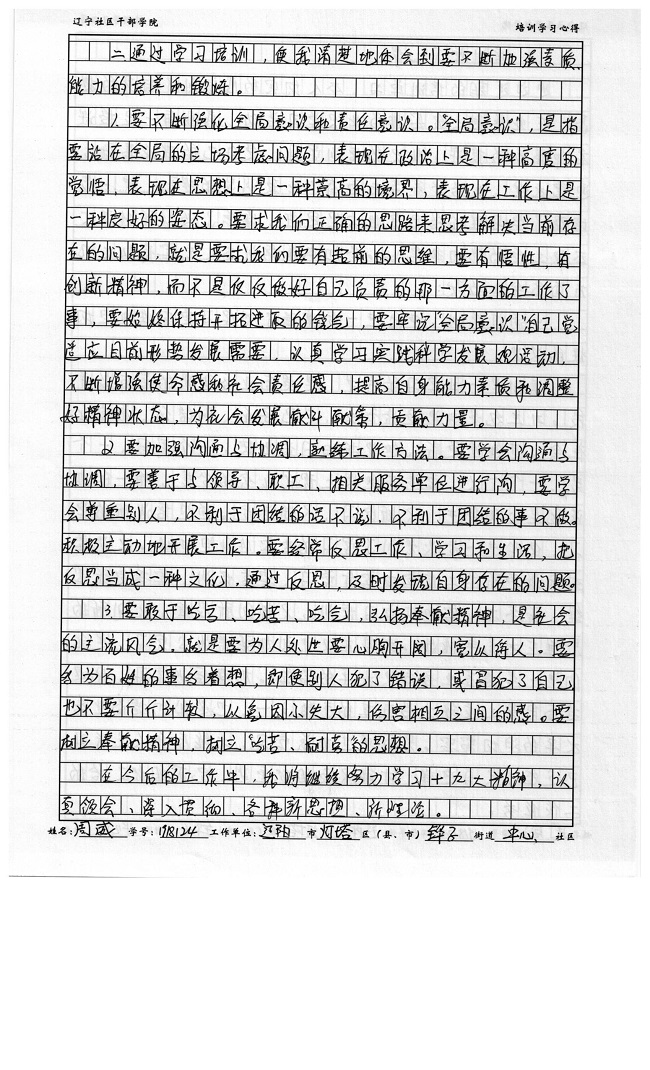 辽宁社区干部学院 培训学习心得
二通过学习培训，使我清楚地体会到要不断加强素质
能力的培养和锻炼。
1.要不断强化全局意识和责任意识。“全局意识”，是指
要站在全局的立场考虑问题，表现在政治上是一种高度的
觉悟，表现在思想上是一种崇高的境界，表现在工作上是
一种良好的姿态。要求我们正确的思路来思考解决当前存
在的问题，就是要求我们要有超前的思维，要有悟性，有
创新精神，而不是仅仅做好自己负责的那一方面的工作了
事，要始终保持开拓进取的锐气，要牢记“全局意识”自己觉
适应目前形势发展需要，认真学习实践科学发展观活动，
不断增强使命感和社会责任感，提高自身能力素质和调整
好精神状态，为社会发展献计献策，贡献力量。
2.要加强沟通与协调，熟练工作方法。要学会沟通与
协调，要善于与领导、职工、相关服务单位进行沟，要学
会尊重别人，不利于团结的话不说，不利于团结的事不做。
积极主动地开展工作。要经常反思工作、学习和生活，把
反思当成一种文化，通过反思，及时发现自身存在的问题。
3.要敢于吃亏、吃苦、吃气，弘扬奉献精神，是社会
的主流风气。就是要为人处世要心胸开阔，宽以待人。要
多为百姓的事多着想，即使别人犯了错误，或冒犯了自己
也不要斤斤计较，以免因小失大，伤害相互之间的感。要
树立奉献精神，树立“吃苦、耐劳的思想。
在今后的工作中，我将继续努力学习十九大精神，认
真领会、深入贯彻、各种新思想、新
姓名：周威 学号：178124 工作单位： 市灯塔区（县、市）铧子街道中心社区